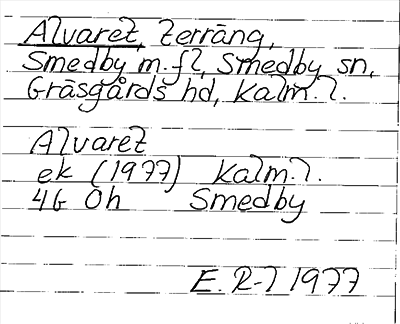 Alvaret, terräng,
Smedby m.fl, Smedby sn,
Gräsgårds hd, Kalm.l.
Alvaret
ek (1977) Kalm.l.
4G Öh Smedby
E. R-l 1977